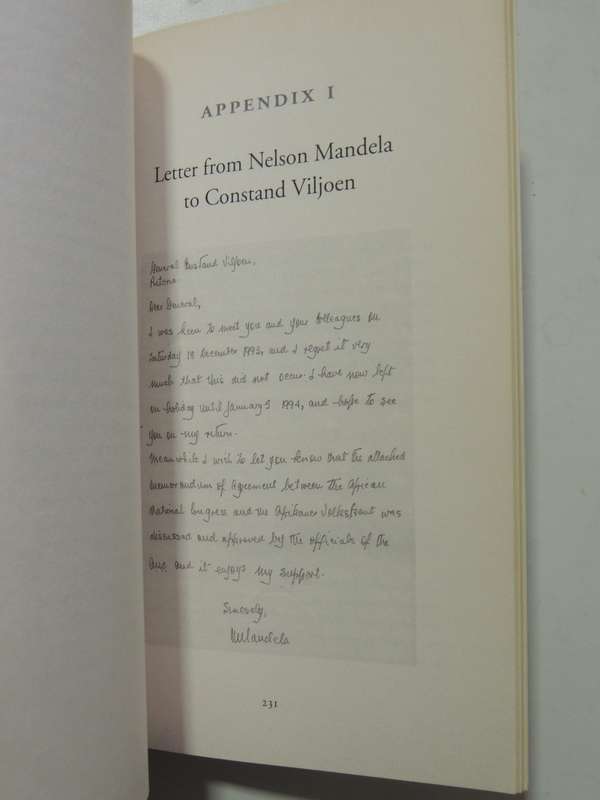 APPENDIX I
Letter from Nelson Mandela
to Constand Viljoen
General Constand Viljoen,
Pretoria
Dear General,
I was keen to meet you and your colleagues on
Saturday 18 December 1993, and I regret it very
much that this did not occur. I have now left
on holiday until January 5 1994, and hope to see
you on my return.
Meanwhile I wish to let you know that the attached
Memorandum of Agreement between the African
National Congress and the Afrikaner Volksfront was
discussed and approved by the officials of the
ANC and it enjoys my support.
Sincerely,
NMandela
231